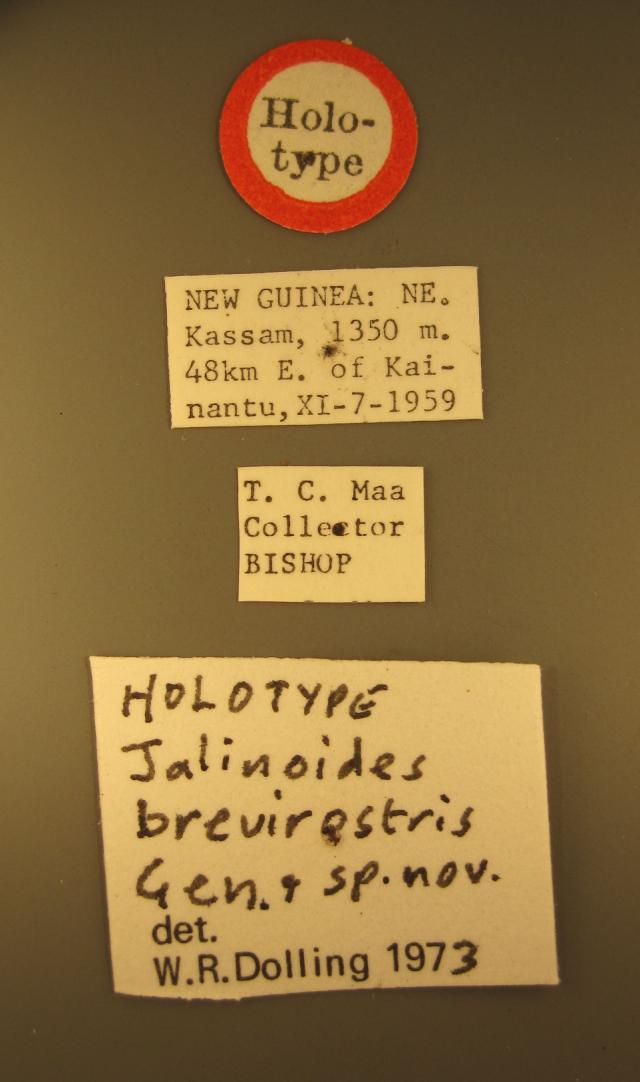 Holo-
type
NEW GUINEA: NE.
Kassam, 1350 m.
48km E. of Kai-
nantu, XI-7-1959
T. C. Maa
Collector
BISHOP
HOLOTYPE
Jalinoides
brevirostris
Gen. & sp. nov.
det.
W.R.Dolling 1973